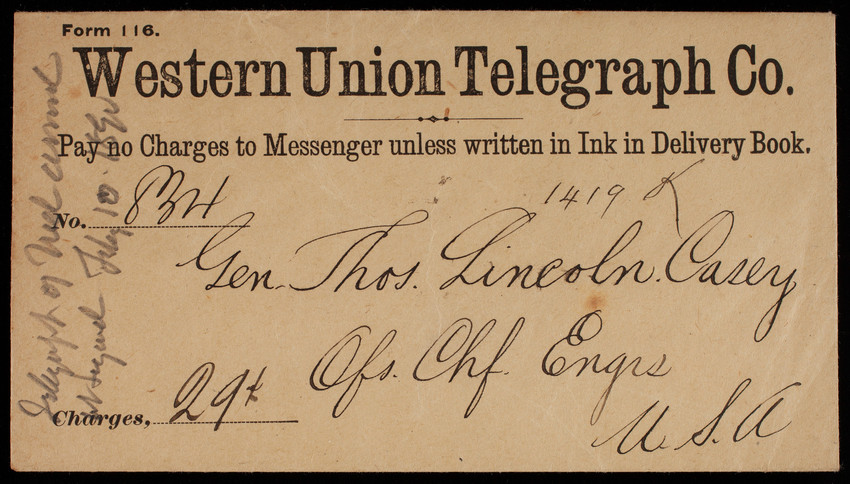 Form 116.
Western Union Telegraph Co.
Pay no Charges to Messenger unless written in Ink in Delivery Book.
No.
1419 K
Gen. Thos. Lincoln. Casey
Ofs. Chf. Engrs
U. S. A
Charges, 29
Telegraph of Ned
July 10